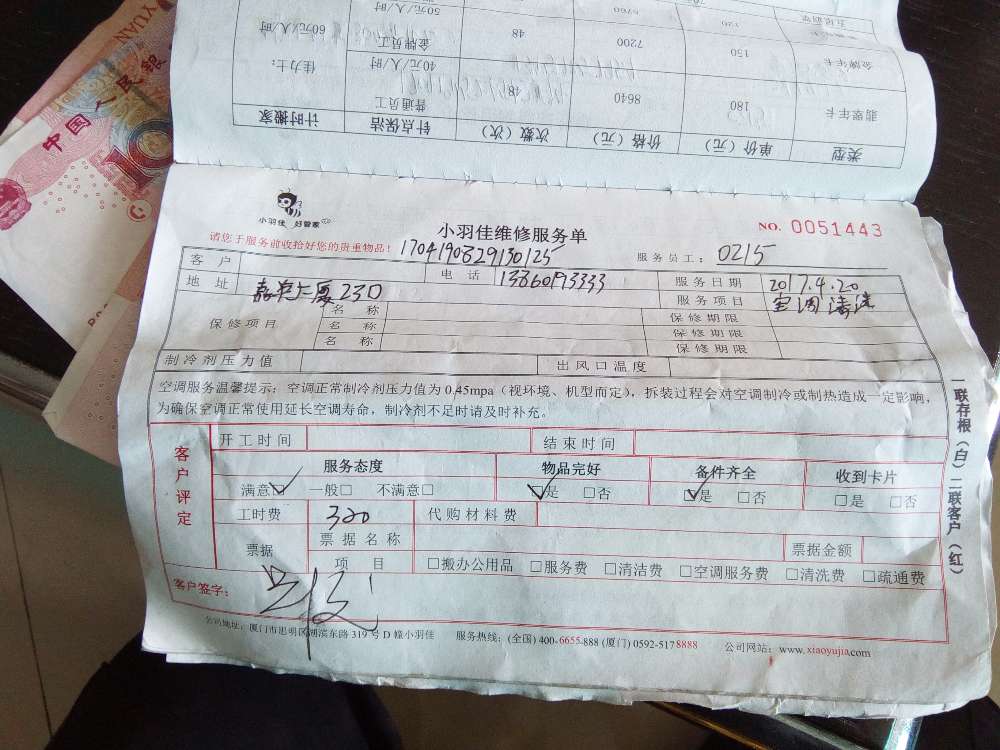 YUAN
中国人民银
五优如卡 120 5760 50元/人/时
金牌年卡 150 7200 48 金牌员工 60元/人/时
翡翠年卡 180 8640 48 普通员工 40元/人/时 佳力士:
类型 单价(元) 价格(元) 次数(次) 针点保洁 计时搬家
小羽佳 好管家
小羽佳维修服务单
NO. 0051443
请您于服务前收拾好您的贵重物品!
1704190829130125
服务员工: 0215
客户 电话 13860193333 服务日期 2017.4.20
地址 大厦23D 服务项目 空调清洗
保修项目 名称 保修期限
名称 保修期限
名称 保修期限
制冷剂压力值 出风口温度
空调服务温馨提示:空调正常制冷剂压力值为0.45mpa(视环境、机型而定),拆装过程会对空调制冷或制热造成一定影响,
为确保空调正常使用延长空调寿命,制冷剂不足时请及时补充。
客户评定
开工时间 结束时间
服务态度 物品完好 备件齐全 收到卡片
满意□ 一般□ 不满意□ □是 □否 □是 □否 □是 □否
工时费 320 代购材料费
票据 票据名称 票据金额
项目 □搬办公用品 □服务费 □清洁费 □空调服务费 □清洗费 □疏通费
客户签字:
公司地址:厦门市思明区湖滨东路319号D幢小羽佳 服务热线:(全国)400-6655-888(厦门)0592-5178888 公司网站:www.xiaoyujia.com
一联存根(白)二联客户(红)